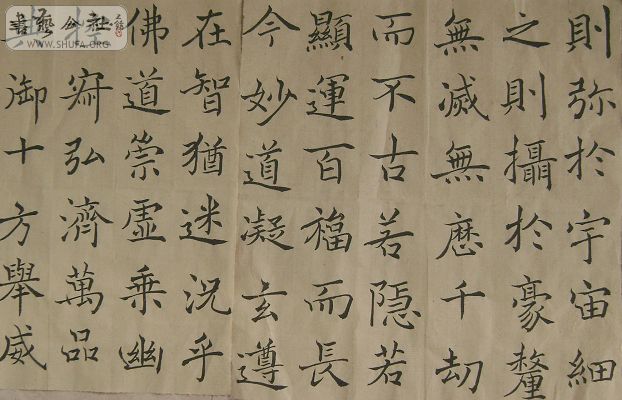 則弥於宇宙細
之則攝於豪釐
無滅無歷千劫
而不古若隱若
顯運百福而長
今妙道凝玄遵
在智猶迷況乎
佛道崇虛乘幽
控寂弘濟萬品
典御十方舉威
書藝公社
WWW.SHUFA.ORG